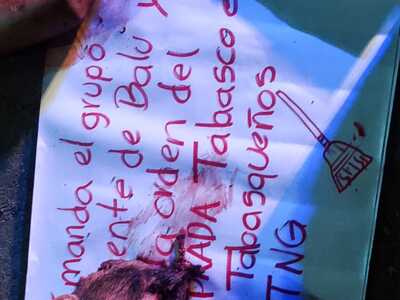 manda el grupo
ente de Balú y
la orden del
PRADA Tabasco e
Tabasqueños
TNG